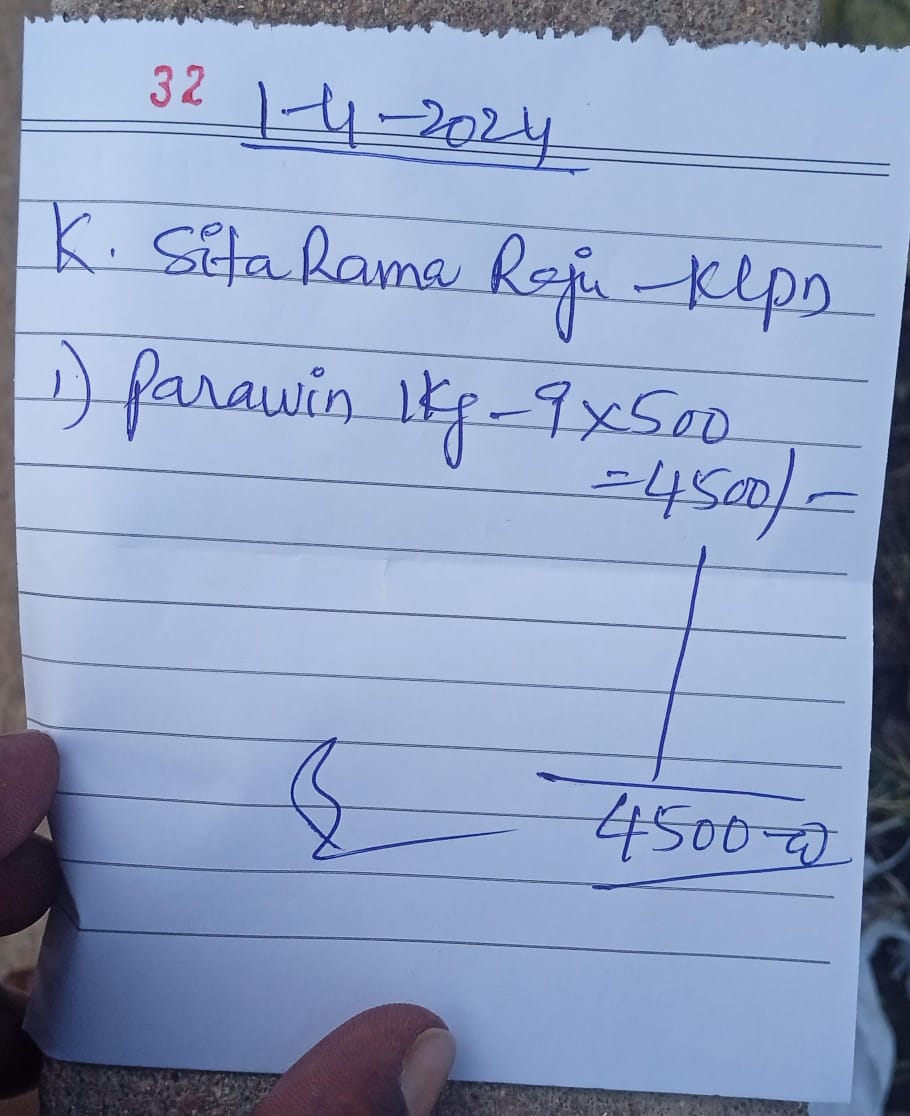 32 1-4-2024
K. Sita Rama Raju - Klpd
1) Parawin 1kg - 9x500
=4500/-
4500-00